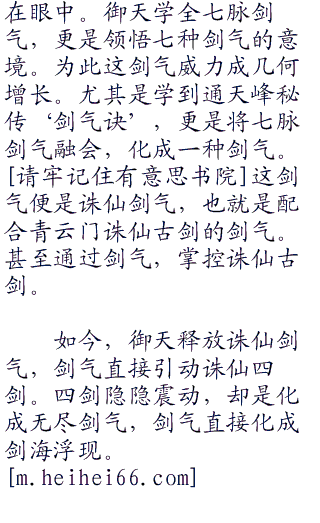 在眼中。御天学全七脉剑
气，更是领悟七种剑气的意
境。为此这剑气威力成几何
增长。尤其是学到通天峰秘
传‘剑气诀’，更是将七脉
剑气融会，化成一种剑气。
[请牢记住有意思书院]这剑
气便是诛仙剑气，也就是配
合青云门诛仙古剑的剑气。
甚至通过剑气，掌控诛仙古
剑。
如今，御天释放诛仙剑
气，剑气直接引动诛仙四
剑。四剑隐隐震动，却是化
成无尽剑气，剑气直接化成
剑海浮现。
[m.heihei66.com]